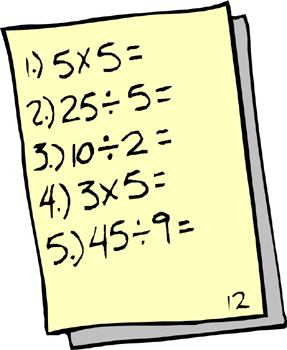 1.) 5×5=
2.) 25÷5=
3.) 10÷2=
4.) 3×5=
5.) 45÷9=
12